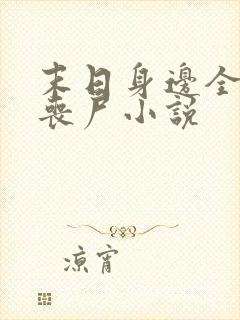 末日身邊全
喪尸小説
凉宵